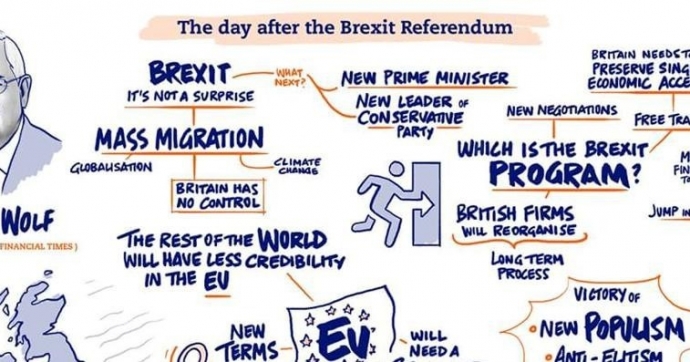 The day after the Brexit Referendum
BREXIT
IT'S NOT A SURPRISE
WHAT
NEXT?
NEW PRIME MINISTER
NEW LEADER OF
CONSERVATIVE
PARTY
MASS MIGRATION
GLOBALISATION
CLIMATE
CHANGE
BRITAIN HAS
NO CONTROL
BRITAIN NEEDS TO
PRESERVE
ECONOMIC
NEW NEGOTIATIONS
FREE
WHICH IS THE BREXIT
PROGRAM?
JUMP IN
BRITISH FIRMS
WILL REORGANISE
LONG TERM
PROCESS
WOLF
FINANCIAL TIMES )
THE REST OF THE WORLD
WILL HAVE LESS CREDIBILITY
IN THE EU
NEW
TERMS
EU
WILL
NEED A
VICTORY OF
NEW POPULISM
ANTI-ELITISM